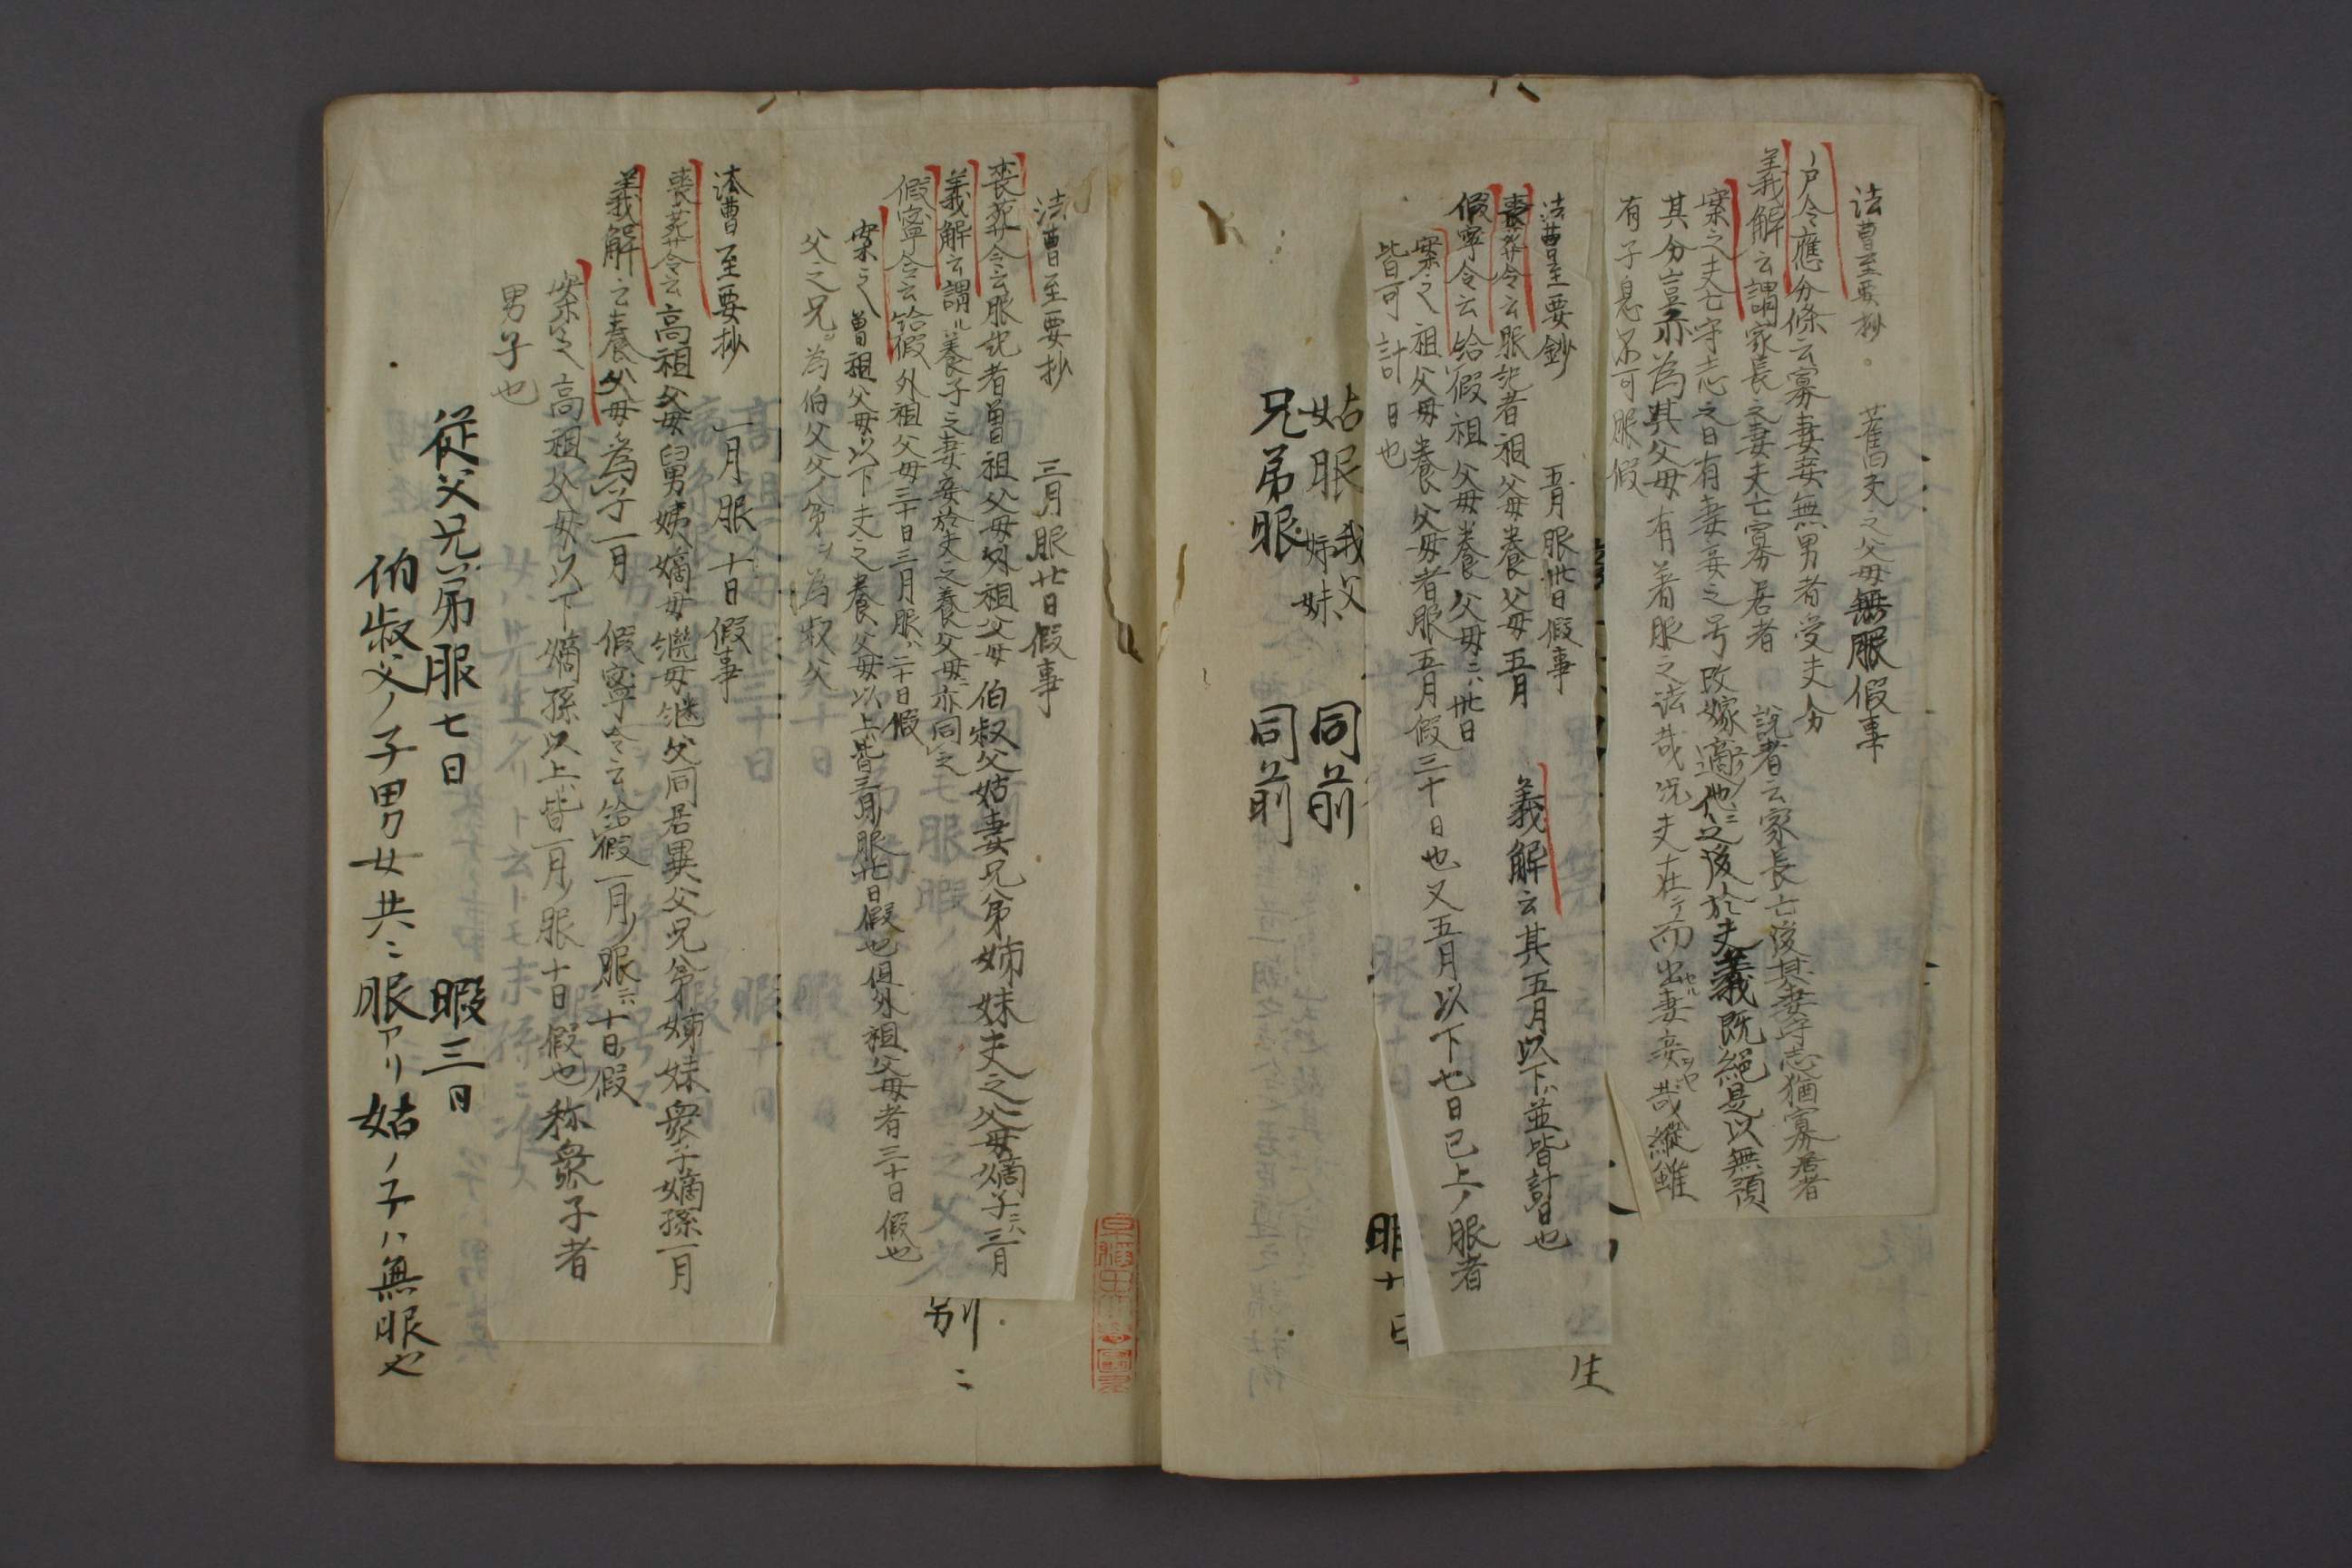 法曹至要抄 舊夫之父母無服假事
戸令應分條云寡妻妾無男者受夫分
義解云謂家長之妻夫亡寡居者 説者云家長亡後其妻守志猶寡居者
案之夫亡守志之日有妻妾之号改嫁適他之後於夫義既絶是以無預
其分豈亦為其父母有着服之法哉況夫在テ而出セル妻妾ヲヤ哉縦雖
有子息不可服假
法曹至要鈔 五月服卅日假事
喪葬令云服紀者祖父母養父母五月 義解云其五月以下並皆計日也
假寧令云給假祖父母養父母ニハ卅日
案之祖父母養父母者服五月假三十日也又五月以下七日已上ノ服者
皆可計日也
生
姑服 我父姉妹 同前
兄弟服 同前
法曹至要抄 三月服廿日假事
喪葬令云服紀者曽祖父母外祖父母伯叔父姑妻兄弟姉妹夫之父母嫡子ニハ三月
義解云謂ハ養子之妻妾於夫之養父母ニ亦同之
假寧令云給假外祖父母三十日三月服ハ二十日假
案之曽祖父母以下夫之養父母以上皆三月服廿日假也但外祖父母者三十日假也
父之兄ヲ為伯父父ノ弟ヲ為叔父
別ニ
法曹至要抄 一月服十日假事
喪葬令云高祖父母舅姨嫡母継母継父同居異父兄弟姉妹衆子嫡孫一月
義解云養父母為子一月 假寧令云給假一月服ニハ十日假
案之高祖父母以下嫡孫以上皆一月服十日假也称衆子者
男子也
従父兄弟服七日 暇三日
伯叔父ノ子男女共ニ服アリ姑ノ子ハ無服也